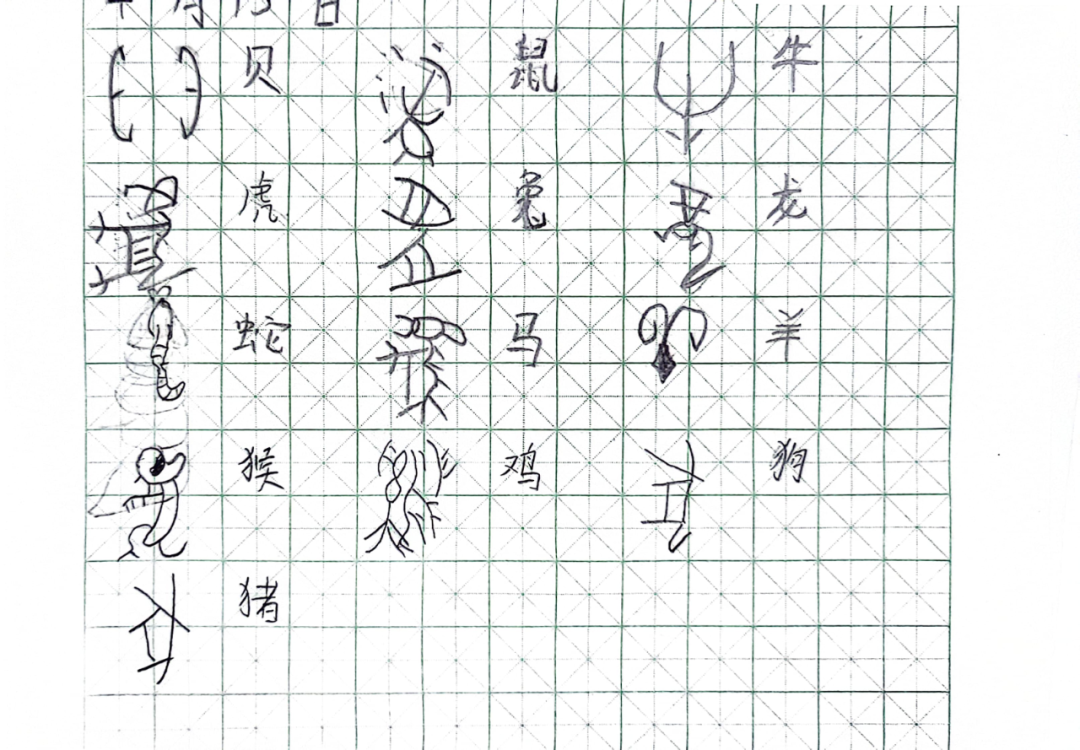 贝 鼠 牛
虎 兔 龙
蛇 马 羊
猴 鸡 狗
猪